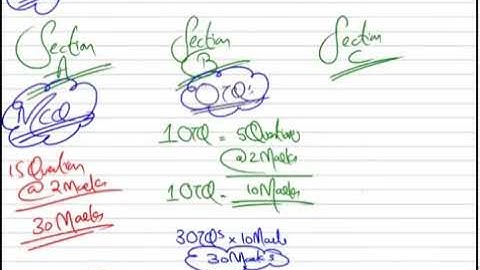 Section
A
MCQ
15 Question
@ 2 Marks
30 Marks
Section
B
OTQ's
1 OTQ = 5 Questions
@ 2 Marks
1 OTQ = 10 Marks
3 OTQs x 10 Marks
30 Marks
Section
C